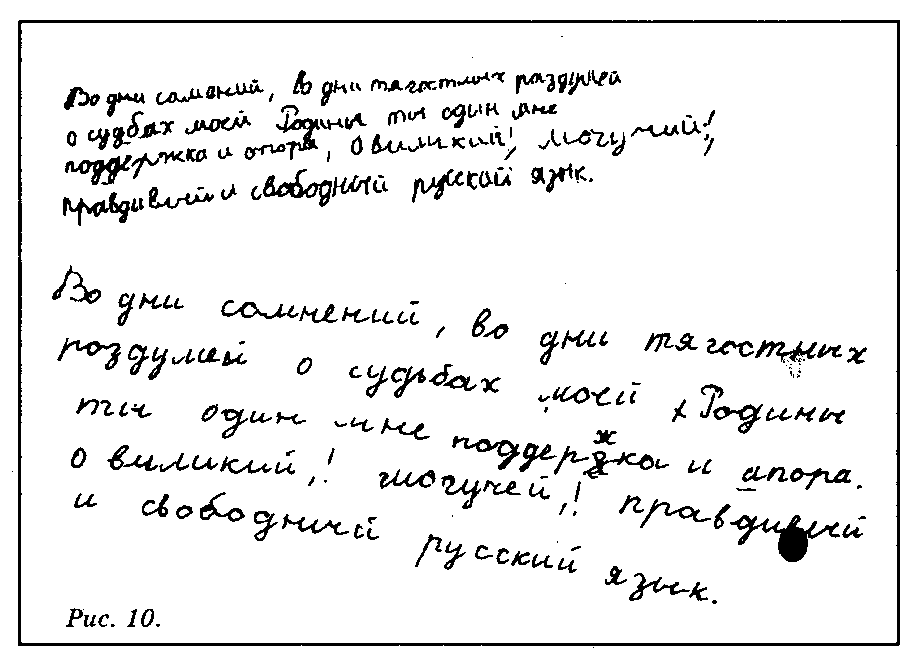 Во дни саменый, во дни тягостных раздумей
о судбах моей Родины ты один мне
поддержка и опора, о виликий!, могучий!,
правдивый и свободный русский язык.
Во дни самнений, во дни тягостных
роздумей о судьбах моей Родины
ты один мне поддержка и апора.
о виликий,! могучей,! правдивый
и свободный русский язык.
Рис. 10.